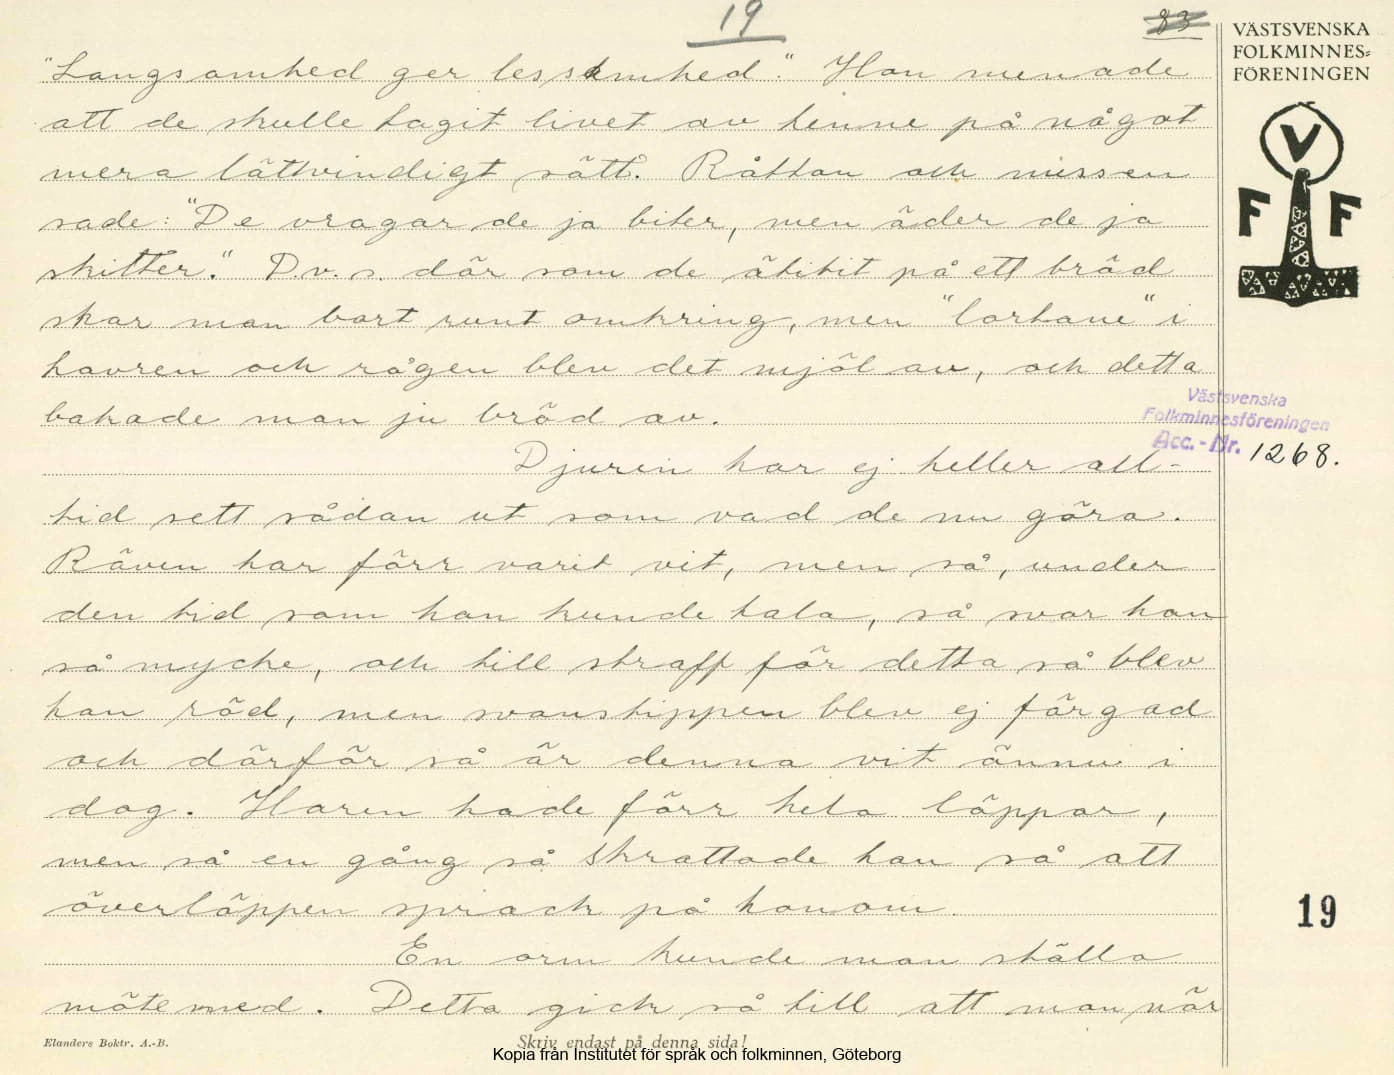 19
83
VÄSTSVENSKA
FOLKMINNES-
FÖRENINGEN
V
F F
"Langsamhed ger lessamhed." Han menade
att de skulle tagit livet av henne på något
mera lättvindigt sätt. Råttan och mussen
sade: "De vragar de ja biter, men äder de ja
skitter." D.v.s. där som de ätitit på ett bröd
skar man bort runt omkring, men "lortane" i
havren och rågen blev det mjöl av, och detta
bakade man ju bröd av.
Västsvenska
Folkminnesföreningen
Acc. - Nr. 1268.
Djuren har ej heller all-
tid sett sådan ut som vad de nu göra.
Räven har förr varit vit, men så, under
den tid som han kunde tala, så svor han
så mycke, och till straff för detta så blev
han röd, men svanstippen blev ej färgad
och därför så är denna vit ännu i
dag. Haren hade förr hela läppar,
men så en gång så skrattade han så att
överläppen sprack på honom.
19
En orm kunde man ställa
möte med. Detta gick så till att man när
Elanders Boktr. A.-B.
Skriv endast på denna sida!
Kopia från Institutet för språk och folkminnen, Göteborg